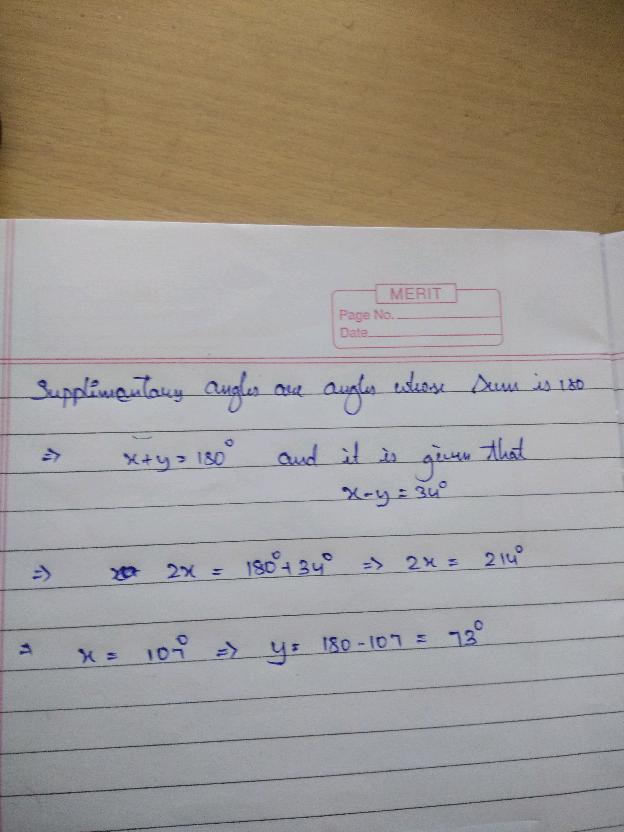 MERIT
Page No.
Date
Supplimentary angles are angles whose sum is 180
⇒ x+y = 180° and it is given that
x-y = 34°
⇒ 2x = 180°+34° ⇒ 2x = 214°
⇒ x = 107° ⇒ y = 180-107 = 73°